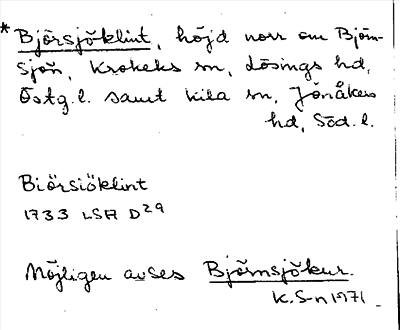 * Björsjöklint, höjd norr om Björn-
sjön, Krokeks sn, Lösings hd,
Östg. l. samt Kila sn, Jönåkers
hd, Söd. l.
Biörsiöklint
1733 LSA D29
Möjligen avses Björnsjökur.
K. S-n 1971